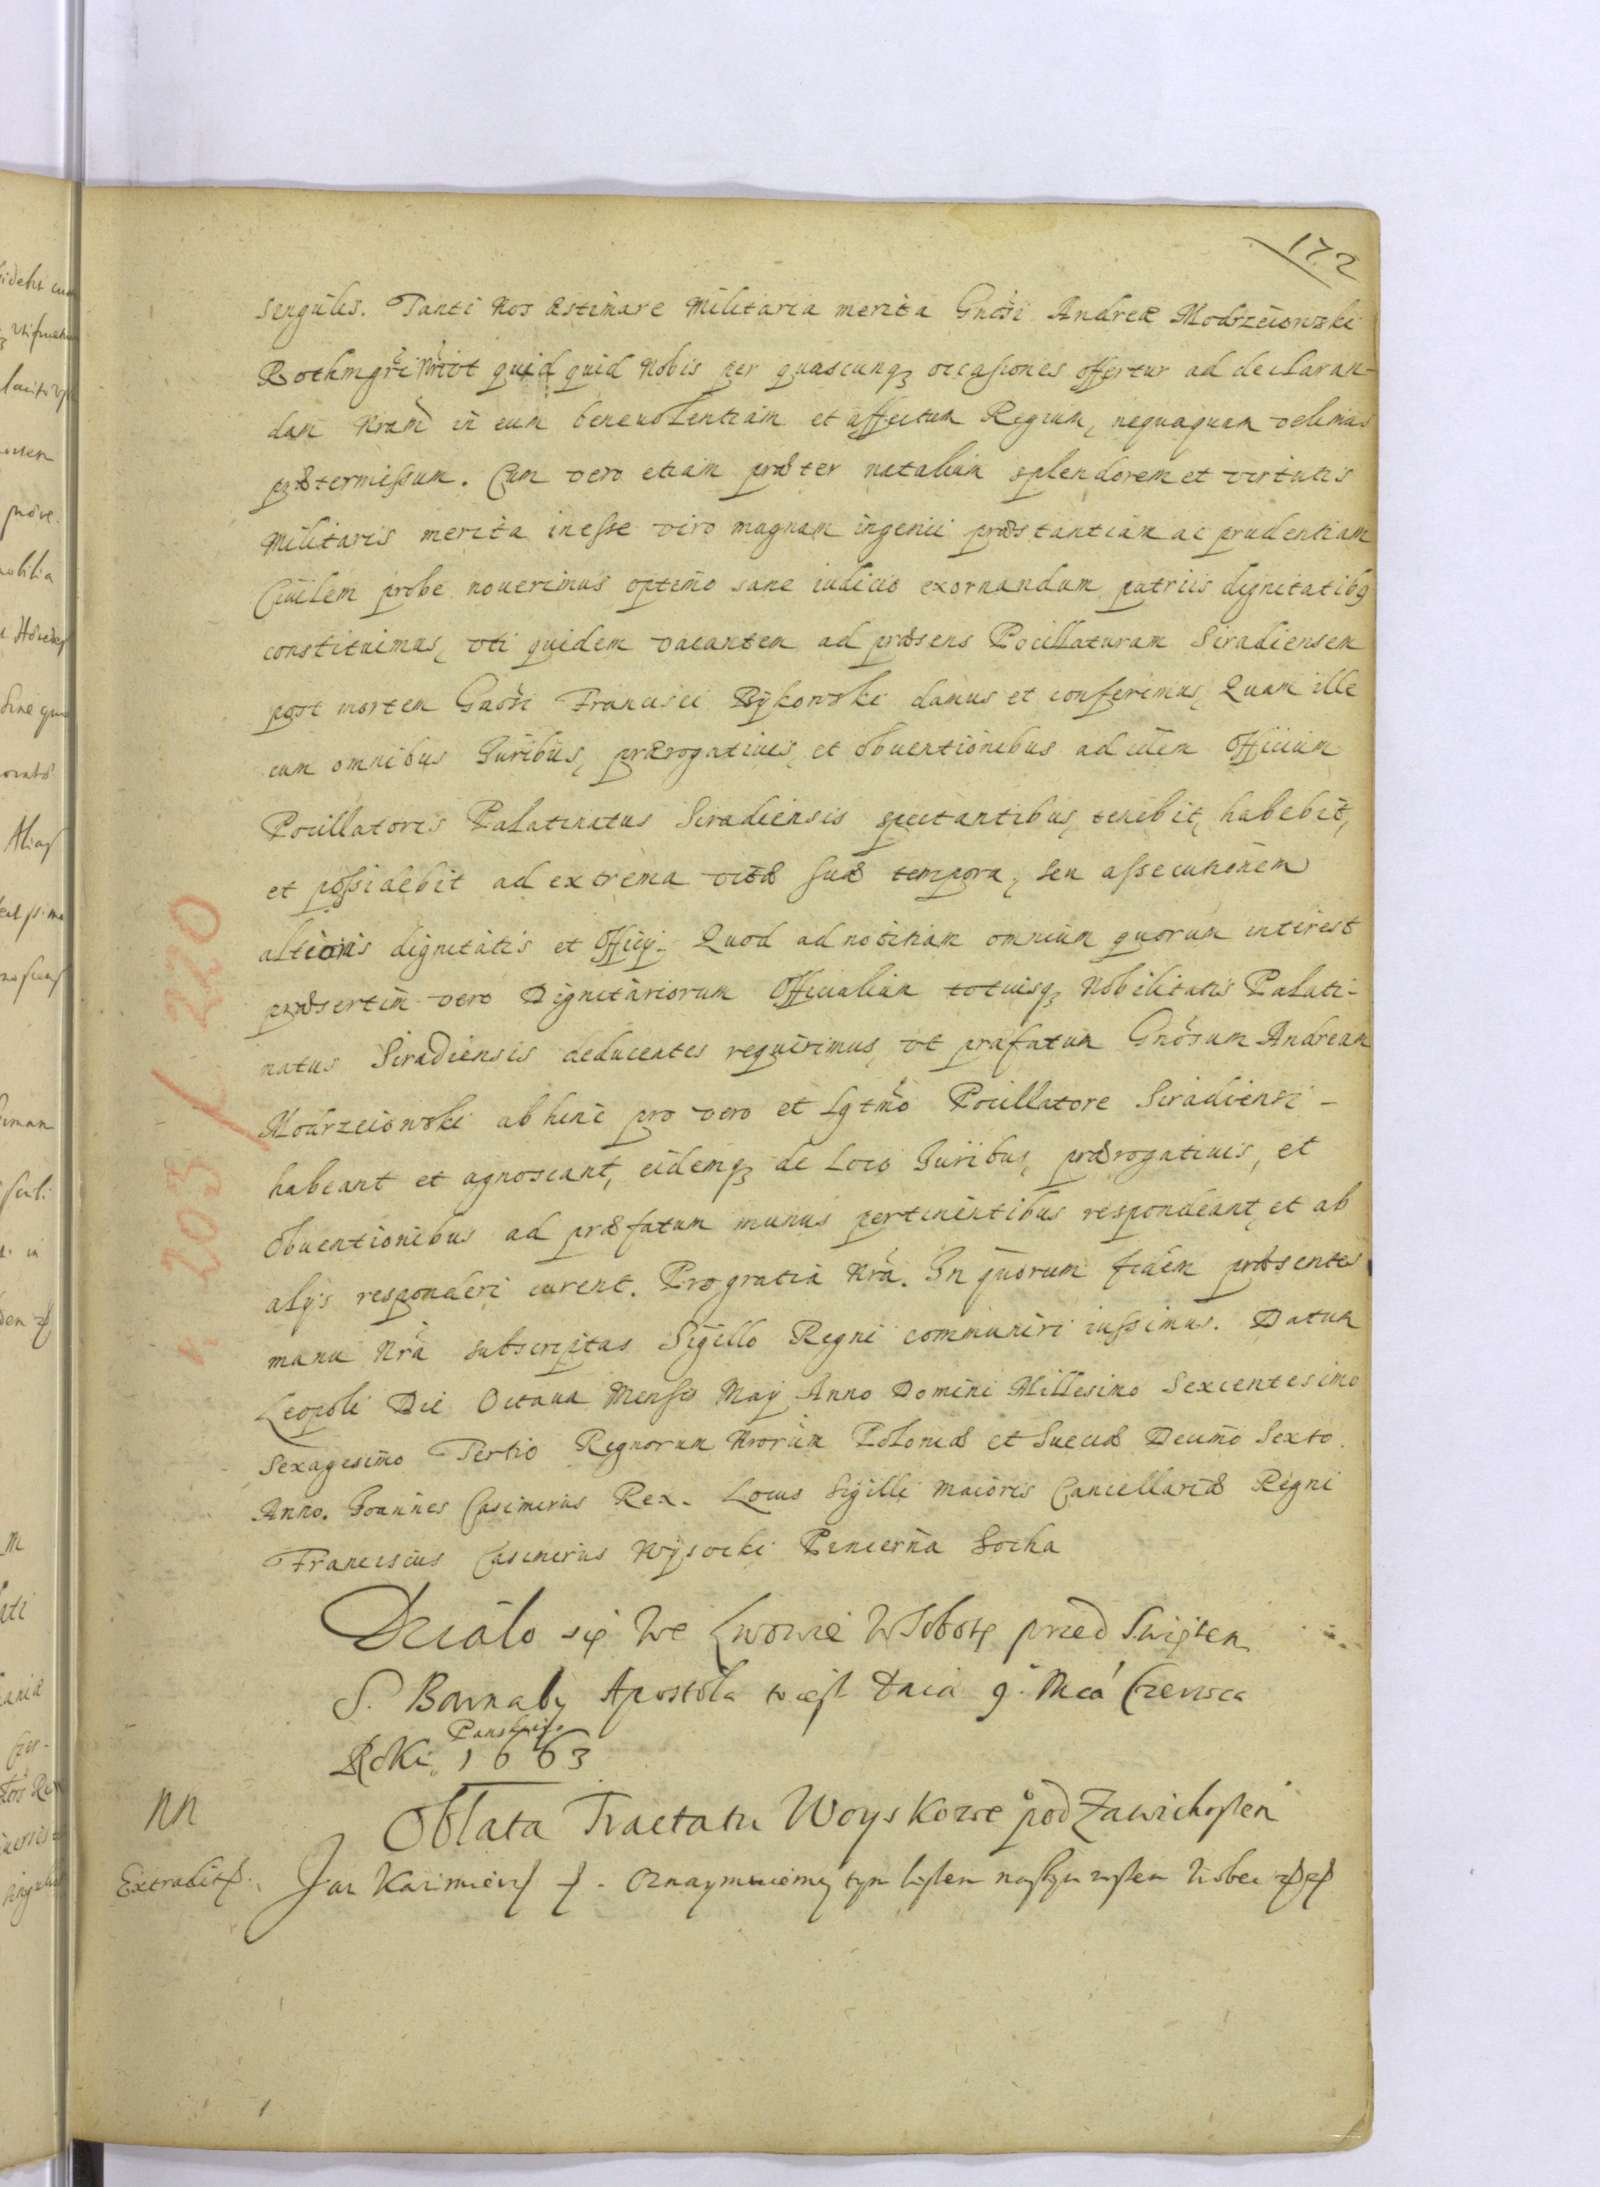 172
singulis. Tanti Nos æstimare Militaria merita Gnosi Andreæ Modrzeiowski
Rothmgri Nri ut quid quid Nobis per quascunq occasiones offertur ad declaran-
dam Nram in eum beneuolentiam et affectum Regium, nequaquam velimus
prætermissum. Cum vero etiam præter natalium splendorem et virtutis
Militaris merita inesse viro magnam ingenii præstantiam ac prudentiam
Ciuilem probe nouerimus optimo sane iudicio exornandum patriis dignitatibq
constituimus, uti quidem vacantem ad præsens Pocillaturam Siradiensem
post mortem Gnosi Francisci Bykowski damus et conferimus, Quam ille
cum omnibus Iuribus, prærogatiuis, et obuentionibus ad idem Officium
Pocillatoris Palatinatus Siradiensis spectantibus, tenebit, habebit,
et possidebit ad extrema vitæ suæ tempora, seu assecutionem
altioris dignitatis et Officij. Quod ad notitiam omnium quorum interest
præsertim vero Dignitariorum Officialium totiusq Nobilitatis Palati-
natus Siradiensis deducentes requirimus, ut præfatum Gnosum Andream
Modrzeiowski ab hinc pro vero et Lgtmo Pocillatore Siradiensi -
habeant et agnoscant, eidemq de Loco Iuribus, prærogatiuis, et
obuentionibus ad præfatum munus pertinentibus respondeant, et ab
alijs responderi curent. Pro gratia Nra. In quorum fidem præsentes
manu Nra subscriptas Sigillo Regni communiri iussimus. Datum
Leopoli Die Octaua Mensis Maij Anno Domini Millesimo Sexcentesimo
Sexagesimo Tertio Regnorum Nrorum Poloniæ et Sueciæ Decimo Sexto.
Anno. Joannes Casimirus Rex. Locus Sigilli Maioris Cancellariæ Regni
Franciscus Casimirus Wysocki Pincerna Socha
Działo się We Lwowie W Sobotę przed Swiętem
S. Barnaby Apostoła to iest Dnia 9. Mca Czerwca
Roku Panskiego 1663
NN
Oblata Tractatu Woyskowe pod Zawichostem
Extradit
Jan Kazimierz. Oznaymuiemy tym listem naszym wszem wobec
n 203 / 220